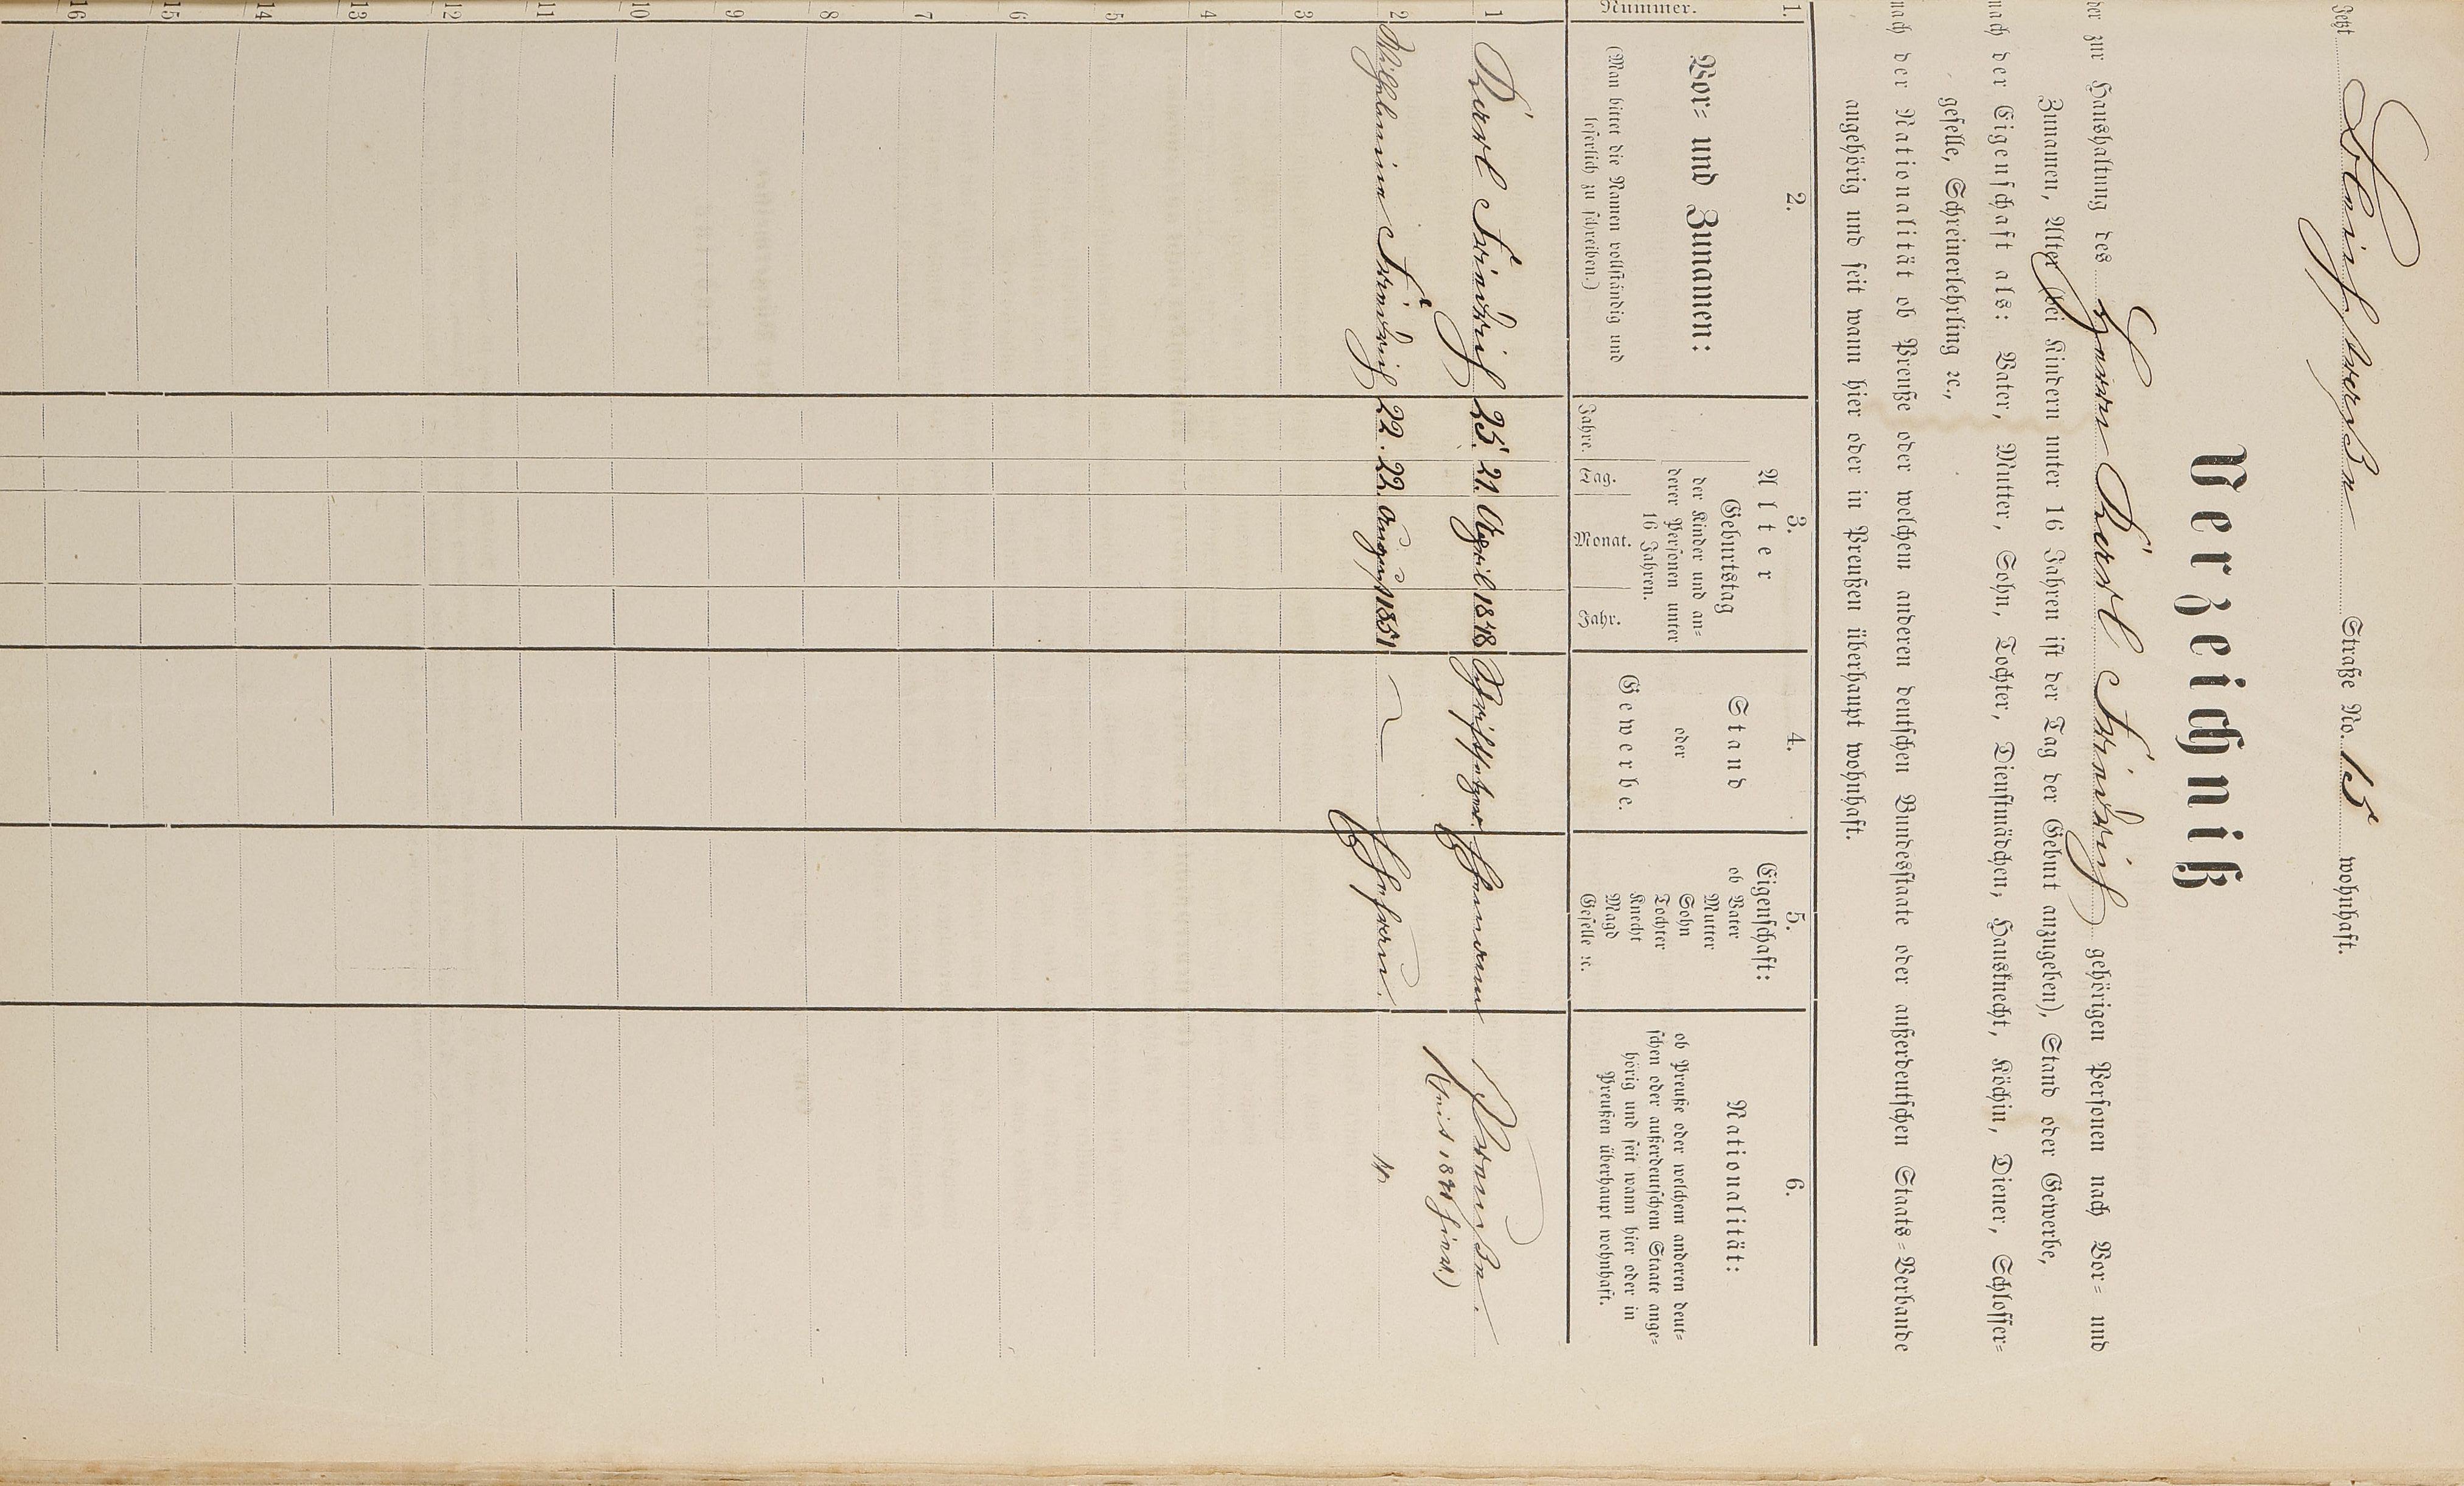 Jetzt Bleichstraße Straße No. 15 wohnhaft.
Verzeichniß
der zur Haushaltung des Herrn Karl Friedrich gehörigen Personen nach Vor= und
Zunamen, Alter (bei Kindern unter 16 Jahren ist der Tag der Geburt anzugeben), Stand oder Gewerbe,
nach der Eigenschaft als: Vater, Mutter, Sohn, Tochter, Dienstmädchen, Hausknecht, Köchin, Diener, Schlosser=
geselle, Schreinerlehrling ꝛc.,
nach der Nationalität ob Preuße oder welchem anderen deutschen Bundesstaate oder außerdeutschen Staats=Verbande
angehörig und seit wann hier oder in Preußen überhaupt wohnhaft.
1.
Nummer.
2.
Vor= und Zunamen:
(Man bittet die Namen vollständig und
leserlich zu schreiben.)
3.
Alter
Geburtstag
der Kinder und an=
derer Personen unter
16 Jahren.
Jahre. Tag. Monat. Jahr.
4.
Stand
oder
Gewerbe.
5.
Eigenschaft:
ob Vater
Mutter
Sohn
Tochter
Knecht
Magd
Geselle ꝛc.
6.
Nationalität:
ob Preuße oder welchem anderen deut=
schen oder außerdeutschem Staate ange=
hörig und seit wann hier oder in
Preußen überhaupt wohnhaft.
1 Karl Friedrich 25. 21. April 1848 Schriftsetzer. Ehemann Preuße.
(seit 1871 hier.)
2 Wilhelmine Friedrich 22. 22. August 1851 — Ehefrau. "
3
4
5
6
7
8
9
10
11
12
13
14
15
16